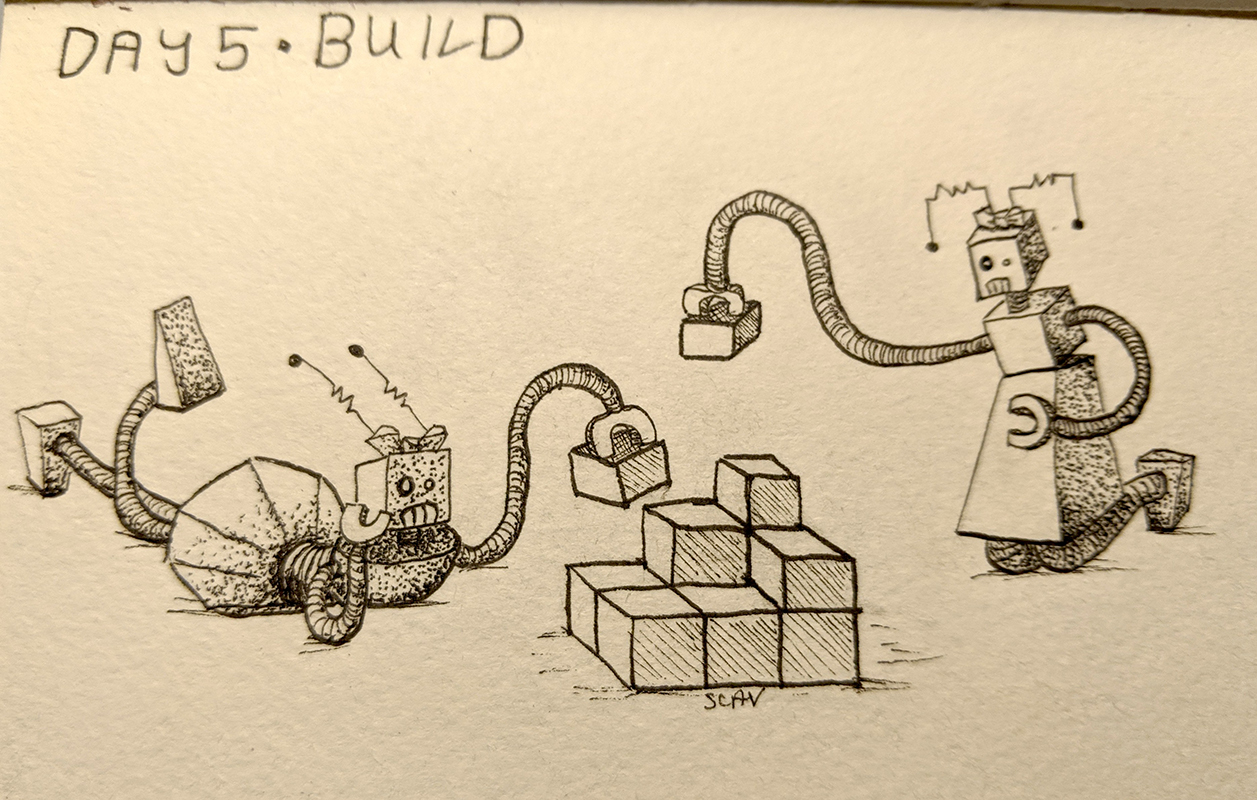 DAY 5 • BUILD
SCAV